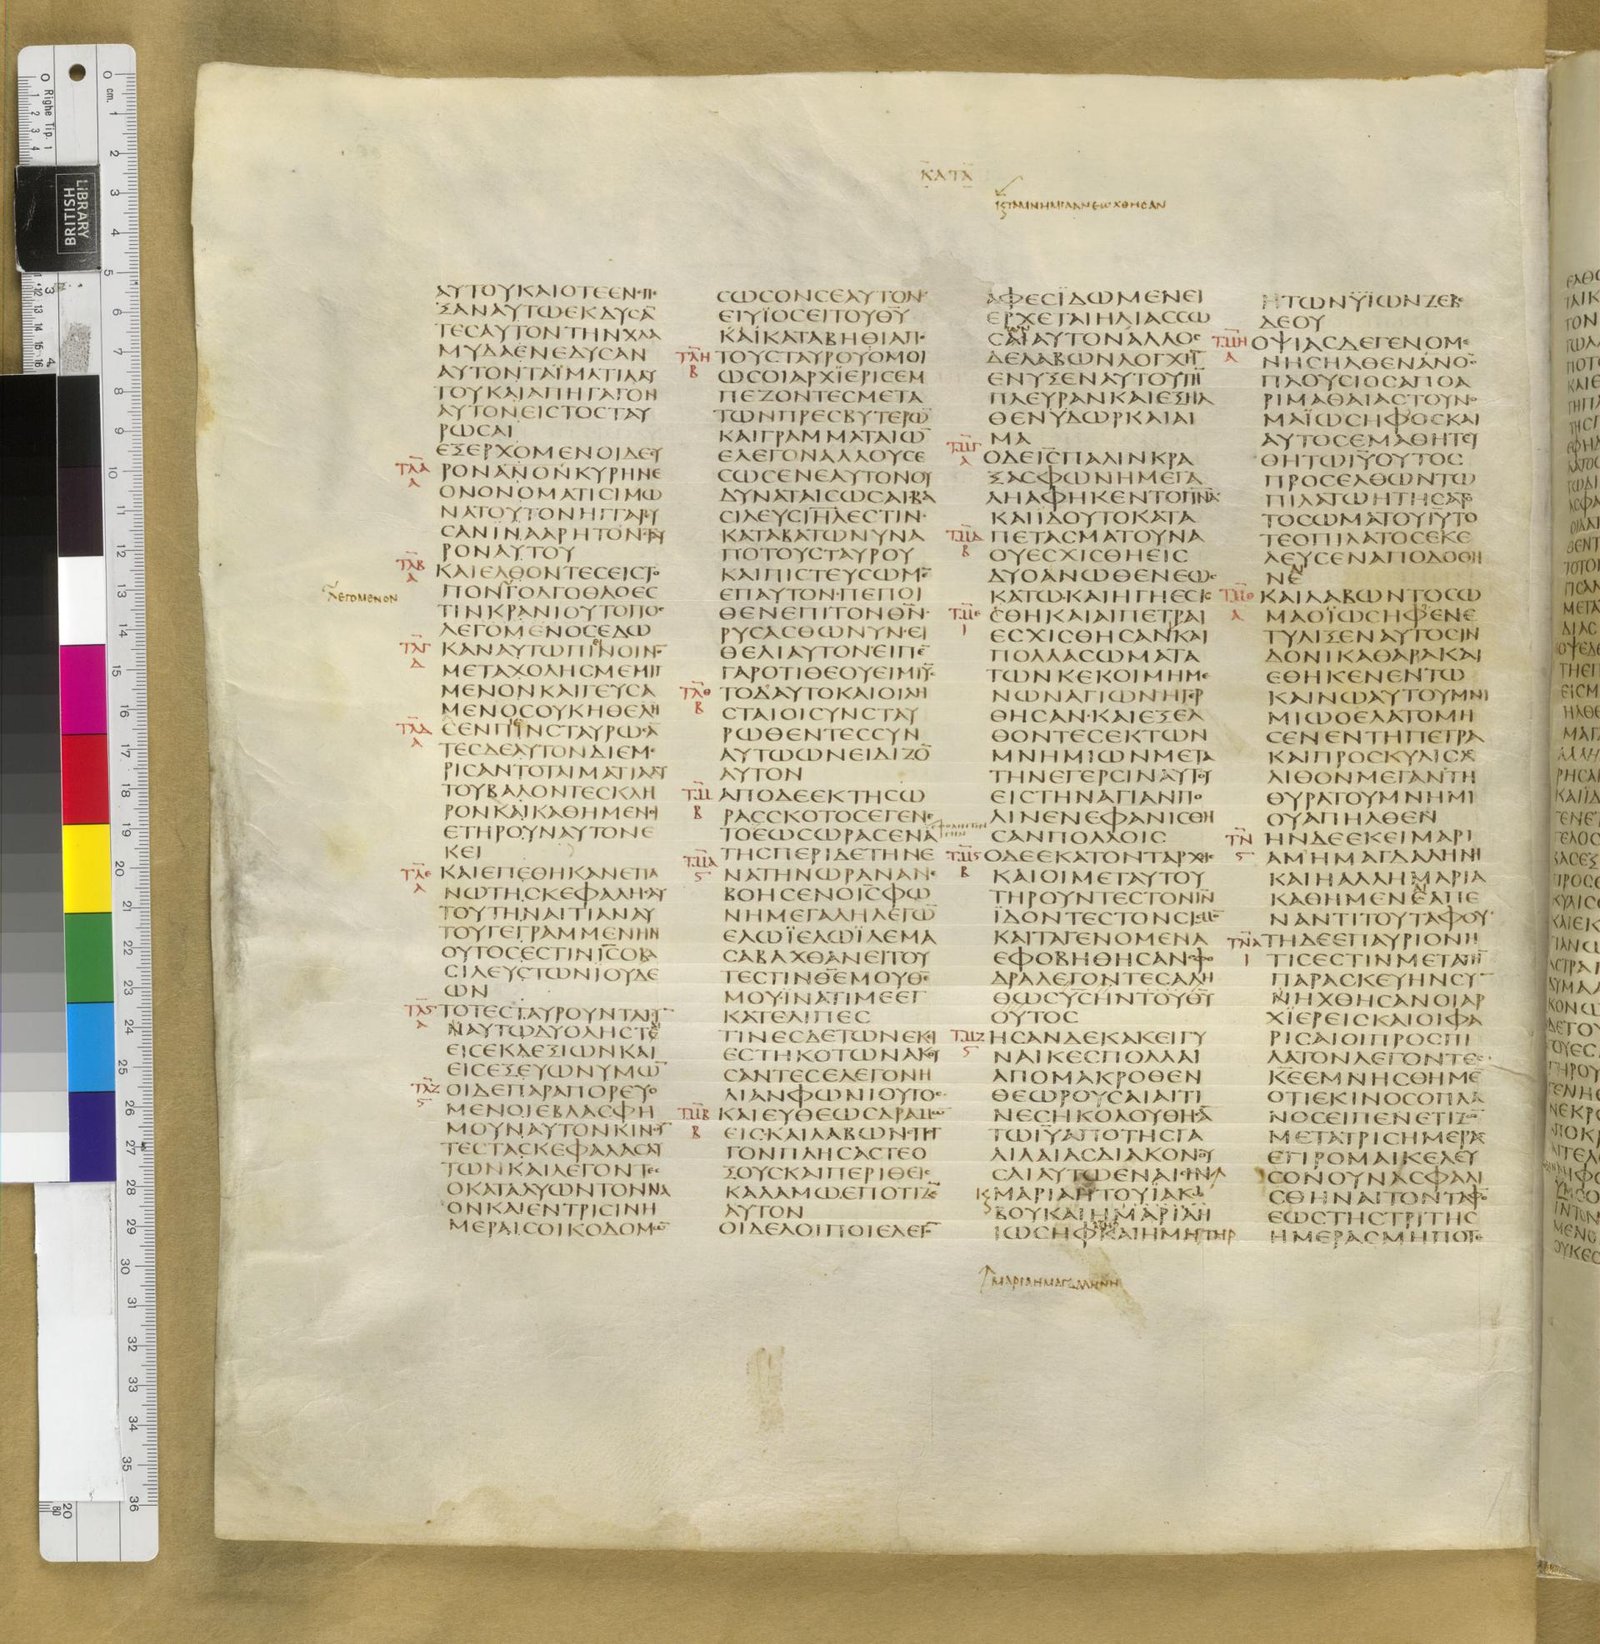 ΚΑΤΑ
ΤΑ ΜΝΗΜΙΑ ΑΝΕΩΧΘΗϹΑΝ
ΑΥΤΟΥΚΑΙΟΤΕΕΝΕΠΕ
ΞΑΝΑΥΤΩΕΚΔΥϹΑ
ΤΕϹΑΥΤΟΝΤΗΝΧΛΑ
ΜΥΔΑΕΝΕΔΥϹΑΝ
ΑΥΤΟΝΤΑΪΜΑΤΙΑΑΥ
ΤΟΥΚΑΙΑΠΗΓΑΓΟΝ
ΑΥΤΟΝΕΙϹΤΟϹΤΑΥ
ΡΩϹΑΙ
ΕΞΕΡΧΟΜΕΝΟΙΔΕΕΥ
ΤΛΑ Α ΡΟΝΑΝΟΝΚΥΡΗΝΕ
ΟΝΟΝΟΜΑΤΙϹΙΜΩ
ΝΑΤΟΥΤΟΝΗΓΓΑΡΕΥ
ϹΑΝΙΝΑΑΡΗΤΟΝϹΤΑΥ
ΡΟΝΑΥΤΟΥ
ΤΛΒ Α ΚΑΙΕΛΘΟΝΤΕϹΕΙϹΤΟ
ΛΕΓΟΜΕΝΟΝ
ΠΟΝΓΟΛΓΟΘΑΟΕϹ
ΤΙΝΚΡΑΝΙΟΥΤΟΠΟϹ
ΛΕΓΟΜΕΝΟϹΕΔΩ
ΤΛΓ Δ ΚΑΝΑΥΤΩΠΙΝΟΙΝΟΝ
ΜΕΤΑΧΟΛΗϹΜΕΜΙΓ
ΜΕΝΟΝΚΑΙΓΕΥϹΑ
ΜΕΝΟϹΟΥΚΗΘΕΛΗ
ΤΛΔ Α ϹΕΝΠΙΝϹΤΑΥΡΩϹΑ
ΤΕϹΔΕΑΥΤΟΝΔΙΕΜΕ
ΡΙϹΑΝΤΟΤΑΙΜΑΤΙΑΑΥ
ΤΟΥΒΑΛΟΝΤΕϹΚΛΗ
ΡΟΝΚΑΙΚΑΘΗΜΕΝΟΙ
ΕΤΗΡΟΥΝΑΥΤΟΝΕ
ΚΕΙ
ΤΛΕ Α ΚΑΙΕΠΕΘΗΚΑΝΕΠΑ
ΝΩΤΗϹΚΕΦΑΛΗϹΑΥ
ΤΟΥΤΗΝΑΙΤΙΑΝΑΥ
ΤΟΥΓΕΓΡΑΜΜΕΝΗΝ
ΟΥΤΟϹΕϹΤΙΝΙϹΟΒΑ
ϹΙΛΕΥϹΤΩΝΙΟΥΔΕ
ΩΝ
ΤΛϚ Α ΤΟΤΕϹΤΑΥΡΟΥΝΤΑΙϹΥ
ΝΑΥΤΩΔΥΟΛΗϹΤΕ
ΕΙϹΕΚΔΕΞΙΩΝΚΑΙ
ΕΙϹΕΞΕΥΩΝΥΜΩΝ
ΤΛΖ Ϛ ΟΙΔΕΠΑΡΑΠΟΡΕΥΟ
ΜΕΝΟΙΕΒΛΑϹΦΗ
ΜΟΥΝΑΥΤΟΝΚΙΝΟΥ
ΤΕϹΤΑϹΚΕΦΑΛΑϹΑΥ
ΤΩΝΚΑΙΛΕΓΟΝΤΕϹ
ΟΚΑΤΑΛΥΩΝΤΟΝΝΑ
ΟΝΚΑΙΕΝΤΡΙϹΙΝΗ
ΜΕΡΑΙϹΟΙΚΟΔΟΜΩ
ϹΩϹΟΝϹΕΑΥΤΟΝ
ΕΙΥΪΟϹΕΙΤΟΥΘΥ
ΚΑΙΚΑΤΑΒΗΘΙΑΠΟ
ΤΛΗ Β ΤΟΥϹΤΑΥΡΟΥΟΜΟΙ
ΩϹΟΙΑΡΧΪΕΡΙϹΕΜ
ΠΕΖΟΝΤΕϹΜΕΤΑ
ΤΩΝΠΡΕϹΒΥΤΕΡΩ
ΚΑΙΓΡΑΜΜΑΤΑΙΩ
ΕΛΕΓΟΝΑΛΛΟΥϹΕ
ϹΩϹΕΝΕΑΥΤΟΝΟΥ
ΔΥΝΑΤΑΙϹΩϹΑΙΒΑ
ϹΙΛΕΥϹΙΗΛΕϹΤΙΝ
ΚΑΤΑΒΑΤΩΝΥΝΑ
ΠΟΤΟΥϹΤΑΥΡΟΥ
ΚΑΙΠΙϹΤΕΥϹΩΜΕ
ΕΠΑΥΤΟΝΠΕΠΟΙ
ΘΕΝΕΠΙΤΟΝΘΝ
ΡΥϹΑϹΘΩΝΥΝΕΙ
ΘΕΛΙΑΥΤΟΝΕΙΠΕ
ΓΑΡΟΤΙΘΕΟΥΕΙΜΙΥϹ
ΤΛΘ Β ΤΟΔΑΥΤΟΚΑΙΟΙΛΗ
ϹΤΑΙΟΙϹΥΝϹΤΑΥ
ΡΩΘΕΝΤΕϹϹΥΝ
ΑΥΤΩΩΝΕΙΔΙΖΟ
ΑΥΤΟΝ
ΤΜ Β ΑΠΟΔΕΕΚΤΗϹΩ
ΡΑϹϹΚΟΤΟϹΕΓΕΝΕ
ΤΟΕΩϹΩΡΑϹΕΝΑ
ΤΜΑ Ϛ ΤΗϹΠΕΡΙΔΕΤΗΝΕ
ΝΑΤΗΝΩΡΑΝΑΝΕ
ΒΟΗϹΕΝΟΙϹΦΩ
ΝΗΜΕΓΑΛΗΛΕΓΩ
ΕΛΩΪΕΛΩΪΛΕΜΑ
ϹΑΒΑΧΘΑΝΕΙΤΟΥ
ΤΕϹΤΙΝΘΕΜΟΥΘΕ
ΜΟΥΪΝΑΤΙΜΕΕΓ
ΚΑΤΕΛΙΠΕϹ
ΤΙΝΕϹΔΕΤΩΝΕΚΙ
ΕϹΤΗΚΟΤΩΝΑΚΟΥ
ϹΑΝΤΕϹΕΛΕΓΟΝΗ
ΛΙΑΝΦΩΝΙΟΥΤΟϹ
ΤΜΒ Β ΚΑΙΕΥΘΕΩϹΔΡΑΜΩ
ΕΙϹΚΑΙΛΑΒΩΝϹΠΓ
ΓΟΝΠΛΗϹΑϹΤΕΟ
ΞΟΥϹΚΑΙΠΕΡΙΘΕΙϹ
ΚΑΛΑΜΩΕΠΟΤΙΖΕ
ΑΥΤΟΝ
ΟΙΔΕΛΟΙΠΟΙΕΛΕΓ
ΑΦΕϹΪΔΩΜΕΝΕΙ
ΕΡΧΕΤΑΙΗΛΙΑϹϹΩ
ϹΑΙΑΥΤΟΝΑΛΛΟϹ
ΔΕΛΑΒΩΝΛΟΓΧΗ
ΕΝΥΞΕΝΑΥΤΟΥΤΗ
ΠΛΕΥΡΑΝΚΑΙΕΞΗΛ
ΘΕΝΥΔΩΡΚΑΙΑΙ
ΜΑ
ΤΜΓ Α ΟΔΕΙϹΠΑΛΙΝΚΡΑ
ΞΑϹΦΩΝΗΜΕΓΑ
ΛΗΑΦΗΚΕΝΤΟΠΝΑ
ΚΑΙΪΔΟΥΤΟΚΑΤΑ
ΤΜΔ Β ΠΕΤΑϹΜΑΤΟΥΝΑ
ΟΥΕϹΧΙϹΘΗΕΙϹ
ΔΥΟΑΝΩΘΕΝΕΩϹ
ΚΑΤΩΚΑΙΗΓΗΕϹΙ
ΤΜΕ Ι ϹΘΗΚΑΙΑΙΠΕΤΡΑΙ
ΕϹΧΙϹΘΗϹΑΝΚΑΙ
ΠΟΛΛΑϹΩΜΑΤΑ
ΤΩΝΚΕΚΟΙΜΗΜΕ
ΝΩΝΑΓΙΩΝΗΓΕΡ
ΘΗϹΑΝΚΑΙΕΞΕΛ
ΘΟΝΤΕϹΕΚΤΩΝ
ΜΝΗΜΙΩΝΜΕΤΑ
ΤΗΝΕΓΕΡϹΙΝΑΥΤΟΥ
ΕΙϹΤΗΝΑΓΙΑΝΠΟ
ΛΙΝΕΝΕΦΑΝΙϹΘΗ
ϹΑΝΠΟΛΛΟΙϹ
ΤΜϚ Β ΟΔΕΕΚΑΤΟΝΤΑΡΧΗϹ
ΚΑΙΟΙΜΕΤΑΥΤΟΥ
ΤΗΡΟΥΝΤΕϹΤΟΝΙΝ
ΪΔΟΝΤΕϹΤΟΝϹΙϹΜΟ
ΚΑΙΤΑΓΕΝΟΜΕΝΑ
ΕΦΟΒΗΘΗϹΑΝϹΦΟ
ΔΡΑΛΕΓΟΝΤΕϹΑΛΗ
ΘΩϹΥϹΗΝΤΟΥΘΥ
ΟΥΤΟϹ
ΤΜΖ Ϛ ΗϹΑΝΔΕΚΑΚΕΙΓΥ
ΝΑΙΚΕϹΠΟΛΛΑΙ
ΑΠΟΜΑΚΡΟΘΕΝ
ΘΕΩΡΟΥϹΑΙΑΙΤΙ
ΝΕϹΗΚΟΛΟΥΘΗϹΑ
ΤΩΙΥΑΠΟΤΗϹΓΑ
ΛΙΛΑΙΑϹΔΙΑΚΟΝΟΥ
ϹΑΙΑΥΤΩΕΝΑΙϹΗΝ
ΜΑΡΙΑΗΤΟΥΪΑΚΩ
ΒΟΥΚΑΙΗΜΑΡΙΑΗ
ΙΩϹΗΦΚΑΙΗΜΗΤΗΡ
ΜΑΡΙΑ Η ΜΑΓΔΑΛΗΝΗ
ΗΤΩΝΫΪΩΝΖΕΒΕ
ΔΕΟΥ
ΤΜΗ Α ΟΨΙΑϹΔΕΓΕΝΟΜΕ
ΝΗϹΗΛΘΕΝΑΝΟϹ
ΠΛΟΥϹΙΟϹΑΠΟΑ
ΡΙΜΑΘΑΙΑϹΤΟΥΝΟ
ΜΑΪΩϹΗΦΟϹΚΑΙ
ΑΥΤΟϹΕΜΑΘΗΤΕΥ
ΘΗΤΩΙΥΟΥΤΟϹ
ΠΡΟϹΕΛΘΩΝΤΩ
ΠΙΛΑΤΩΗΤΗϹΑΤΟ
ΤΟϹΩΜΑΤΟΥΙΥΤΟ
ΤΕΟΠΙΛΑΤΟϹΕΚΕ
ΛΕΥϹΕΝΑΠΟΔΟΘΗ
ΝΕ
ΤΜΘ Α ΚΑΙΛΑΒΩΝΤΟϹΩ
ΜΑΟΪΩϹΗΦΕΝΕ
ΤΥΛΙΞΕΝΑΥΤΟϹΙΝ
ΔΟΝΙΚΑΘΑΡΑΚΑΙ
ΕΘΗΚΕΝΕΝΤΩ
ΚΑΙΝΩΑΥΤΟΥΜΝΗ
ΜΙΩΟΕΛΑΤΟΜΗ
ϹΕΝΕΝΤΗΠΕΤΡΑ
ΚΑΙΠΡΟϹΚΥΛΙϹΑϹ
ΛΙΘΟΝΜΕΓΑΝΤΗ
ΘΥΡΑΤΟΥΜΝΗΜΙ
ΟΥΑΠΗΛΘΕΝ
ΤΝ Ϛ ΗΝΔΕΕΚΕΙΜΑΡΙ
ΑΜΗΜΑΓΔΑΛΗΝΗ
ΚΑΙΗΑΛΛΗΜΑΡΙΑ
ΚΑΘΗΜΕΝΕΑΠΕ
ΝΑΝΤΙΤΟΥΤΑΦΟΥ
ΤΝΑ Ι ΤΗΔΕΕΠΑΥΡΙΟΝΗ
ΤΙϹΕϹΤΙΝΜΕΤΑΤΗ
ΠΑΡΑϹΚΕΥΗΝϹΥ
ΝΗΧΘΗϹΑΝΟΙΑΡ
ΧΙΕΡΕΙϹΚΑΙΟΙΦΑ
ΡΙϹΑΙΟΙΠΡΟϹΠΙ
ΛΑΤΟΝΛΕΓΟΝΤΕϹ
ΚΕΕΜΝΗϹΘΗΜΕ
ΟΤΙΕΚΙΝΟϹΟΠΛΑ
ΝΟϹΕΙΠΕΝΕΤΙΖΩ
ΜΕΤΑΤΡΙϹΗΜΕΡΑϹ
ΕΓΙΡΟΜΑΙΚΕΛΕΥ
ϹΟΝΟΥΝΑϹΦΑΛΙ
ϹΘΗΝΑΙΤΟΝΤΑΦΟ
ΕΩϹΤΗϹΤΡΙΤΗϹ
ΗΜΕΡΑϹΜΗΠΟΤΕ
BRITISH
LIBRARY